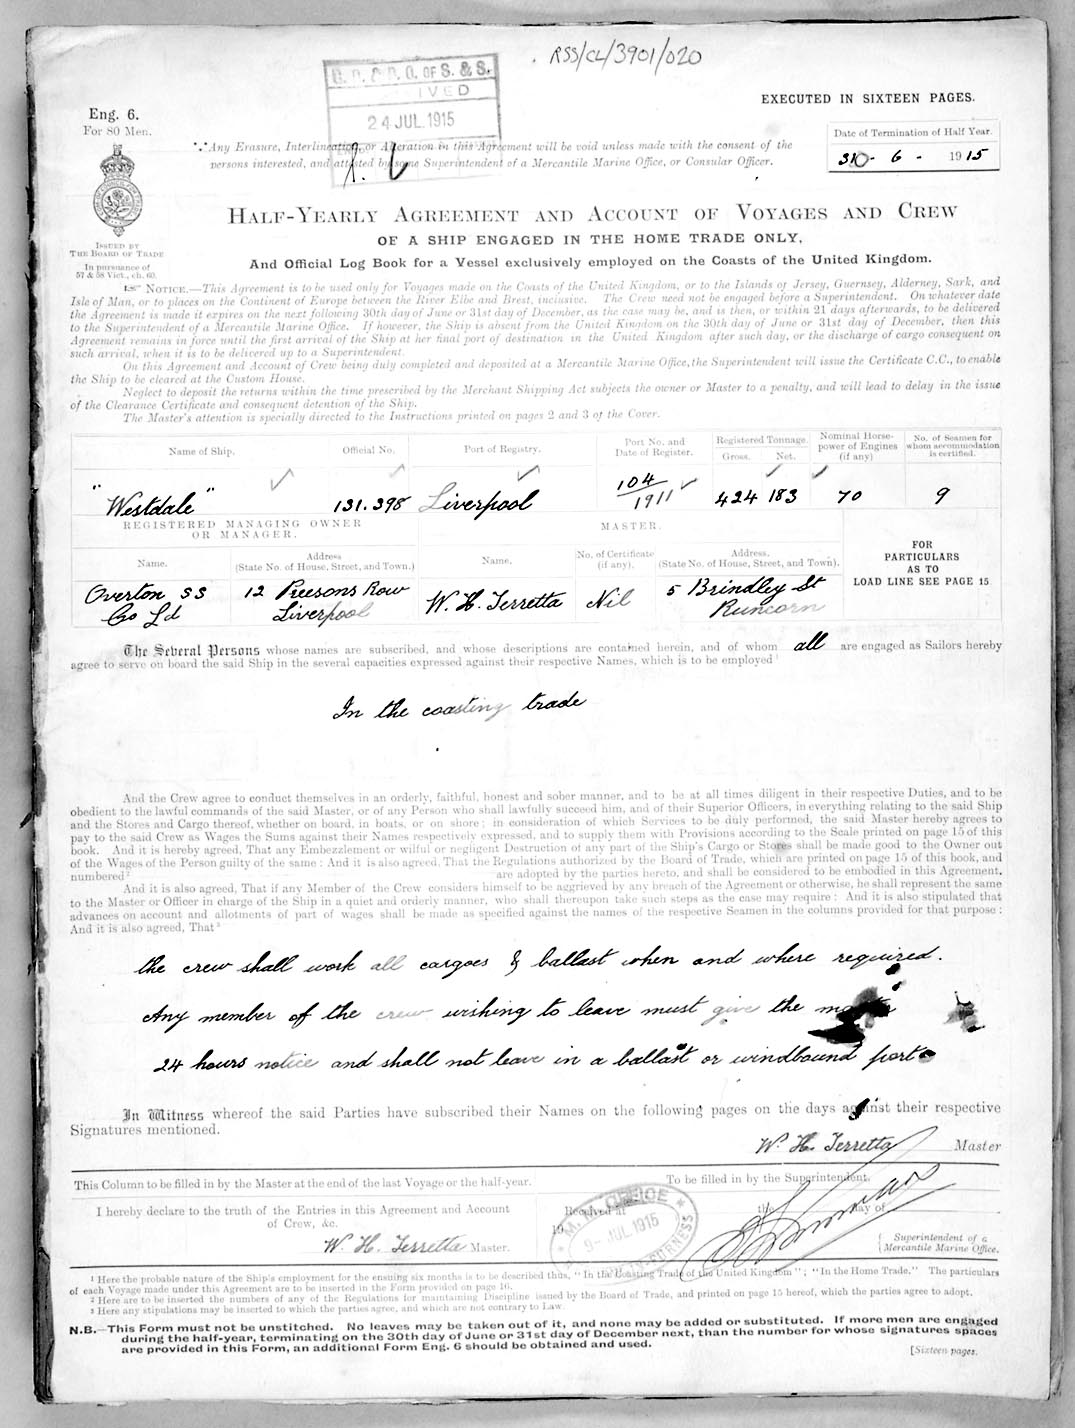 RSS/CL/3901/020
G. R. & R. O. OF S. & S.
24 JUL. 1915
EXECUTED IN SIXTEEN PAGES.
Eng. 6.
For 80 Men.
Date of Termination of Half Year.
30 - 6 - 1915
∵ Any Erasure, Interlineation, or Alteration in this Agreement will be void unless made with the consent of the
persons interested, and attested by some Superintendent of a Mercantile Marine Office, or Consular Officer.
ISSUED BY
THE BOARD OF TRADE
In pursuance of
57 & 58 Vict., ch. 60.
HALF-YEARLY AGREEMENT AND ACCOUNT OF VOYAGES AND CREW
OF A SHIP ENGAGED IN THE HOME TRADE ONLY,
And Official Log Book for a Vessel exclusively employed on the Coasts of the United Kingdom.
☞ NOTICE.—This Agreement is to be used only for Voyages made on the Coasts of the United Kingdom, or to the Islands of Jersey, Guernsey, Alderney, Sark, and
Isle of Man, or to places on the Continent of Europe between the River Elbe and Brest, inclusive. The Crew need not be engaged before a Superintendent. On whatever date
the Agreement is made it expires on the next following 30th day of June or 31st day of December, as the case may be, and is then, or within 21 days afterwards, to be delivered
to the Superintendent of a Mercantile Marine Office. If however, the Ship is absent from the United Kingdom on the 30th day of June or 31st day of December, then this
Agreement remains in force until the first arrival of the Ship at her final port of destination in the United Kingdom after such day, or the discharge of cargo consequent on
such arrival, when it is to be delivered up to a Superintendent.
On this Agreement and Account of Crew being duly completed and deposited at a Mercantile Marine Office, the Superintendent will issue the Certificate C.C., to enable
the Ship to be cleared at the Custom House.
Neglect to deposit the returns within the time prescribed by the Merchant Shipping Act subjects the owner or Master to a penalty, and will lead to delay in the issue
of the Clearance Certificate and consequent detention of the Ship.
The Master's attention is specially directed to the Instructions printed on pages 2 and 3 of the Cover.
Name of Ship. Official No. Port of Registry. Port No. and Date of Register. Registered Tonnage. Gross. Net. Nominal Horse-power of Engines (if any) No. of Seamen for whom accommodation is certified.
"Westdale" 131.398 Liverpool 104/1911 424 183 70 9
REGISTERED MANAGING OWNER
OR MANAGER.
MASTER.
Name. Address (State No. of House, Street, and Town.) Name. No. of Certificate (if any). Address. (State No. of House, Street, and Town).
FOR
PARTICULARS
AS TO
LOAD LINE SEE PAGE 15
Overton SS 12 Preesons Row W. H. Terretta Nil 5 Brindley St
Co Ld Liverpool Runcorn
The Several Persons whose names are subscribed, and whose descriptions are contained herein, and of whom all are engaged as Sailors hereby
agree to serve on board the said Ship in the several capacities expressed against their respective Names, which is to be employed¹
In the coasting trade
And the Crew agree to conduct themselves in an orderly, faithful, honest and sober manner, and to be at all times diligent in their respective Duties, and to be
obedient to the lawful commands of the said Master, or of any Person who shall lawfully succeed him, and of their Superior Officers, in everything relating to the said Ship
and the Stores and Cargo thereof, whether on board, in boats, or on shore; in consideration of which Services to be duly performed, the said Master hereby agrees to
pay to the said Crew as Wages the Sums against their Names respectively expressed, and to supply them with Provisions according to the Scale printed on page 15 of this
book. And it is hereby agreed, That any Embezzlement or wilful or negligent Destruction of any part of the Ship's Cargo or Stores shall be made good to the Owner out
of the Wages of the Person guilty of the same: And it is also agreed, That the Regulations authorized by the Board of Trade, which are printed on page 15 of this book, and
numbered² are adopted by the parties hereto, and shall be considered to be embodied in this Agreement.
And it is also agreed, That if any Member of the Crew considers himself to be aggrieved by any breach of the Agreement or otherwise, he shall represent the same
to the Master or Officer in charge of the Ship in a quiet and orderly manner, who shall thereupon take such steps as the case may require: And it is also stipulated that
advances on account and allotments of part of wages shall be made as specified against the names of the respective Seamen in the columns provided for that purpose:
And it is also agreed, That³
the crew shall work all cargoes & ballast when and where required.
Any member of the crew wishing to leave must give the master
24 hours notice and shall not leave in a ballast or windbound port
In Witness whereof the said Parties have subscribed their Names on the following pages on the days against their respective
Signatures mentioned.
W. H. Terretta Master
This Column to be filled in by the Master at the end of the last Voyage or the half-year.
To be filled in by the Superintendent.
I hereby declare to the truth of the Entries in this Agreement and Account
of Crew, &c.
W. H. Terretta Master.
Received at the day of
19
M. M. OFFICE
9 - JUL. 1915
Superintendent of a
Mercantile Marine Office.
¹ Here the probable nature of the Ship's employment for the ensuing six months is to be described thus, "In the Coasting Trade of the United Kingdom"; "In the Home Trade." The particulars
of each Voyage made under this Agreement are to be inserted in the Form provided on page 16.
² Here are to be inserted the numbers of any of the Regulations for maintaining Discipline issued by the Board of Trade, and printed on page 15 hereof, which the parties agree to adopt.
³ Here any stipulations may be inserted to which the parties agree, and which are not contrary to Law.
N.B.—This Form must not be unstitched. No leaves may be taken out of it, and none may be added or substituted. If more men are engaged
during the half-year, terminating on the 30th day of June or 31st day of December next, than the number for whose signatures spaces
are provided in this Form, an additional Form Eng. 6 should be obtained and used.
[Sixteen pages.